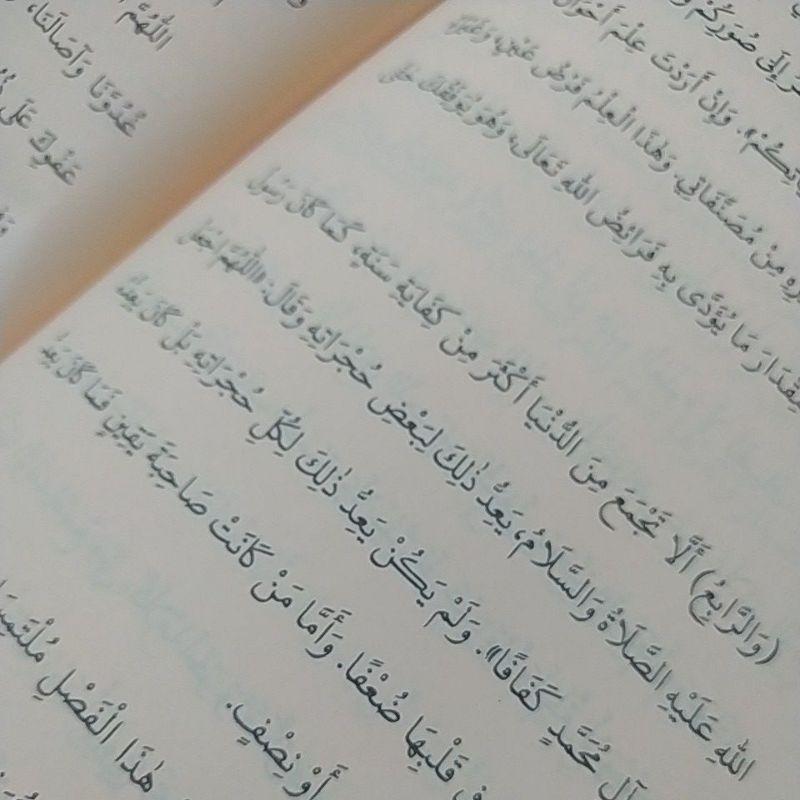 إِلَى صُوَرِكُمْ
وَإِنْ أَرَدْتَ عِلْمَ أَحْوَالِ
مِنْ مُصَنَّفَاتِي. وَهٰذَا الْعِلْمُ فَرْضُ عَيْنٍ، وَغَيْرُهُ
مِقْدَارَ مَا يُؤَدَّى بِهِ فَرَائِضُ اللهِ تَعَالَى، وَهُوَ يُوَفِّقُكَ حَتَّى
(وَالرَّابِعُ) أَلَّا تَجْمَعَ مِنَ الدُّنْيَا أَكْثَرَ مِنْ كِفَايَةِ سَنَةٍ، كَمَا كَانَ رَسُولُ
اللهِ عَلَيْهِ الصَّلَاةُ وَالسَّلَامُ، يَعِدُّ ذٰلِكَ لِبَعْضِ حُجْرَاتِهِ وَقَالَ: «اللّٰهُمَّ اجْعَلْ
آلِ مُحَمَّدٍ كَفَافًا». وَلَمْ يَكُنْ يَعِدُّ ذٰلِكَ لِكُلِّ حُجْرَاتِهِ بَلْ كَانَ يَعِدُّهُ
قَلْبِهَا ضُعْفًا. وَأَمَّا مَنْ كَانَتْ صَاحِبَةَ يَقِينٍ فَمَا كَانَ يَعِدُّ
أَوْ نِصْفٍ.
هٰذَا الْفَصْلِ
اللّٰهُمَّ
غُدُوَّنَا وَآصَالَنَا،
عَفْوِكَ عَلَى